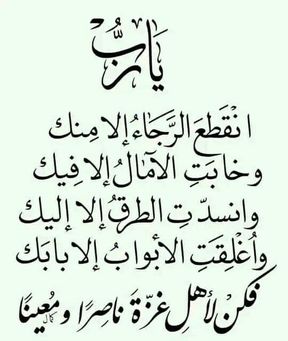 يَا رَبُّ
انْقَطَعَ الرَّجَاءُ إلا مِنك
وخابَتِ الآمَالُ إلا فِيك
وانسدّتِ الطرقُ إلا إليك
وأُغْلِقَتِ الأبوابُ إلا بابَك
فكنْ لأهلِ غزّةَ ناصِرًا ومُعينًا